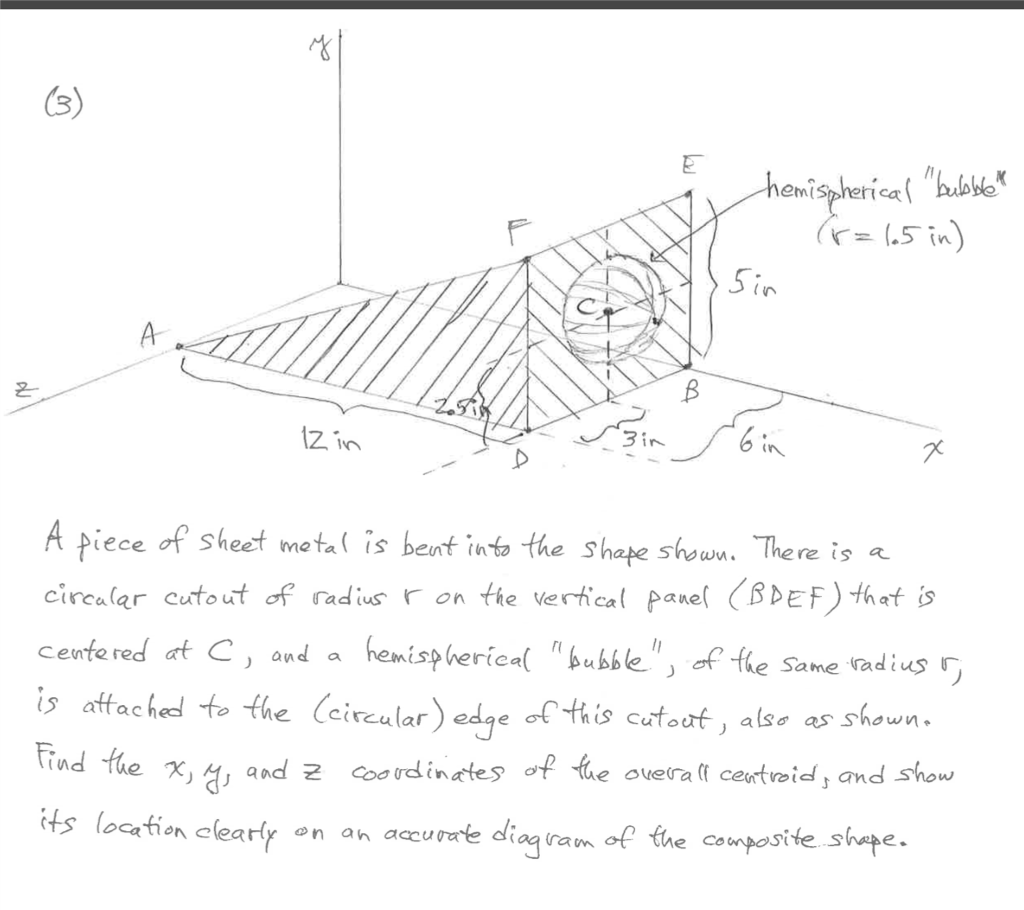 y
(3)
E
hemispherical "bubble"
(r = 1.5 in)
F
5 in
C
A
z
2.5 in
B
12 in
3 in
6 in
x
D
A piece of sheet metal is bent into the shape shown. There is a
circular cutout of radius r on the vertical panel (BDEF) that is
centered at C, and a hemispherical "bubble", of the same radius r,
is attached to the (circular) edge of this cutout, also as shown.
Find the x, y, and z coordinates of the overall centroid, and show
its location clearly on an accurate diagram of the composite shape.